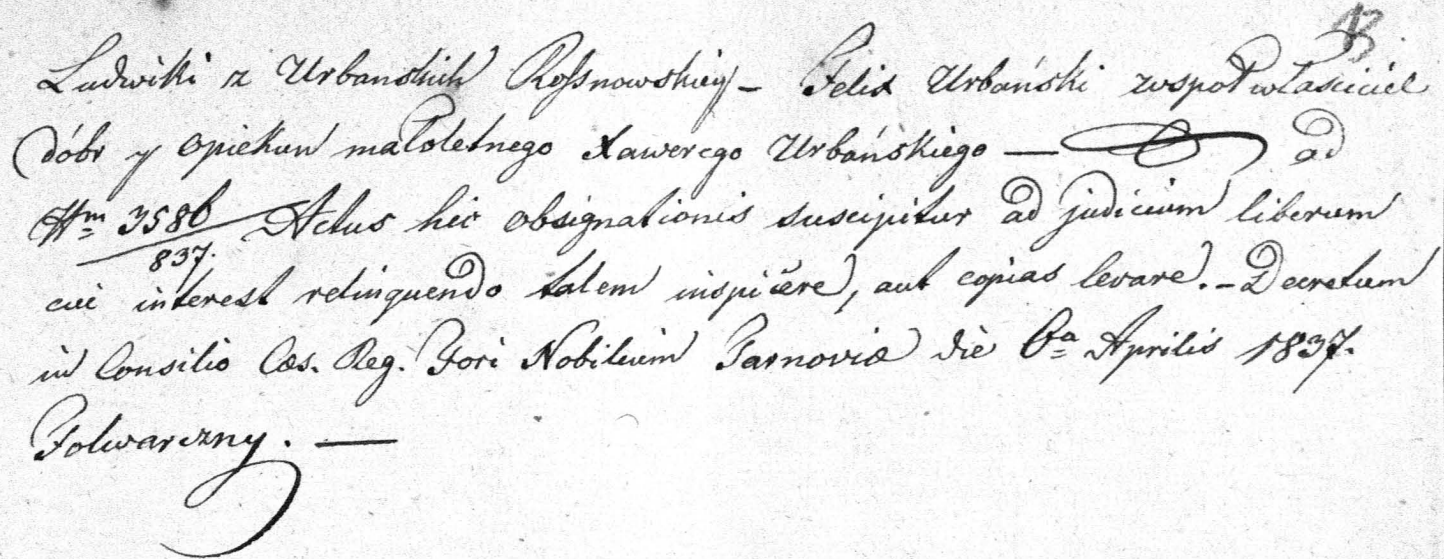 13.
Ludwiki z Urbanskich Rossnowskiey – Felix Urbański wspołwłasciciel
dóbr y opiekun małoletnego Xawerego Urbańskiego — ad
Num 3586/837. Actus hic obsignationis suscipitur ad judicium liberum
cui interest relinquendo talem inspicere, aut copias levare. – Decretum
in Consilio Cæs. Reg. Fori Nobilium Tarnoviæ die 6a Aprilis 1837.
Folwarczny. —